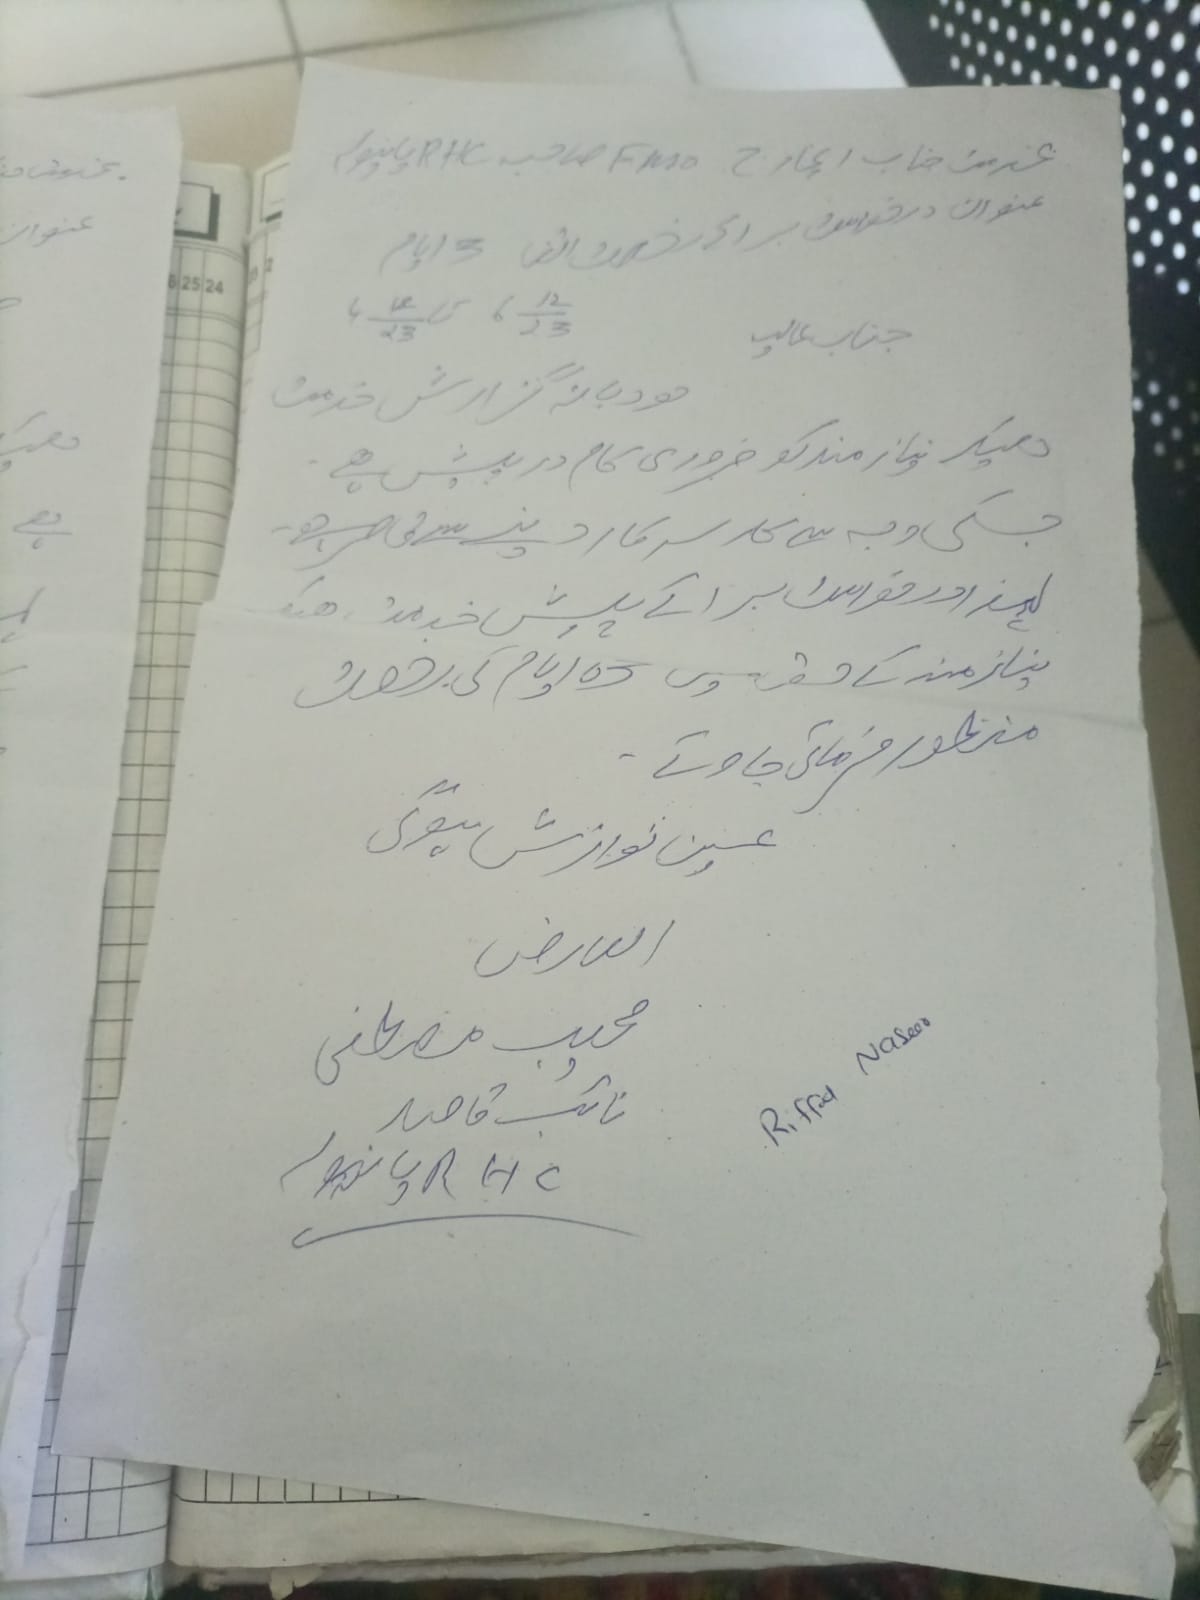 بخدمت جناب انچارج FMO صاحب RHC پانیولہ
عنوان درخواست برائے رخصت اتفاقیہ 3 ایام
6 12/23 تا 4 12/23
جناب عالیہ
مودبانہ گزارش خدمت
ہیکہ نیازمند کو ضروری کام درپیش ہے۔
جسکی وجہ سے کار سرکار دینے سے قاصر ہے۔
لہذا درخواست برائے پیش خدمت ہیکہ
نیازمند کے حق میں 03 ایام کی رخصت
منظور فرمائی جاوئے۔
عین نوازش ہوگی
العارض
محبوب مصطفی
نائب قاصد
RHC پانیولہ
Riffat Naseer
25 24
عنوان
ہیکہ
ہے